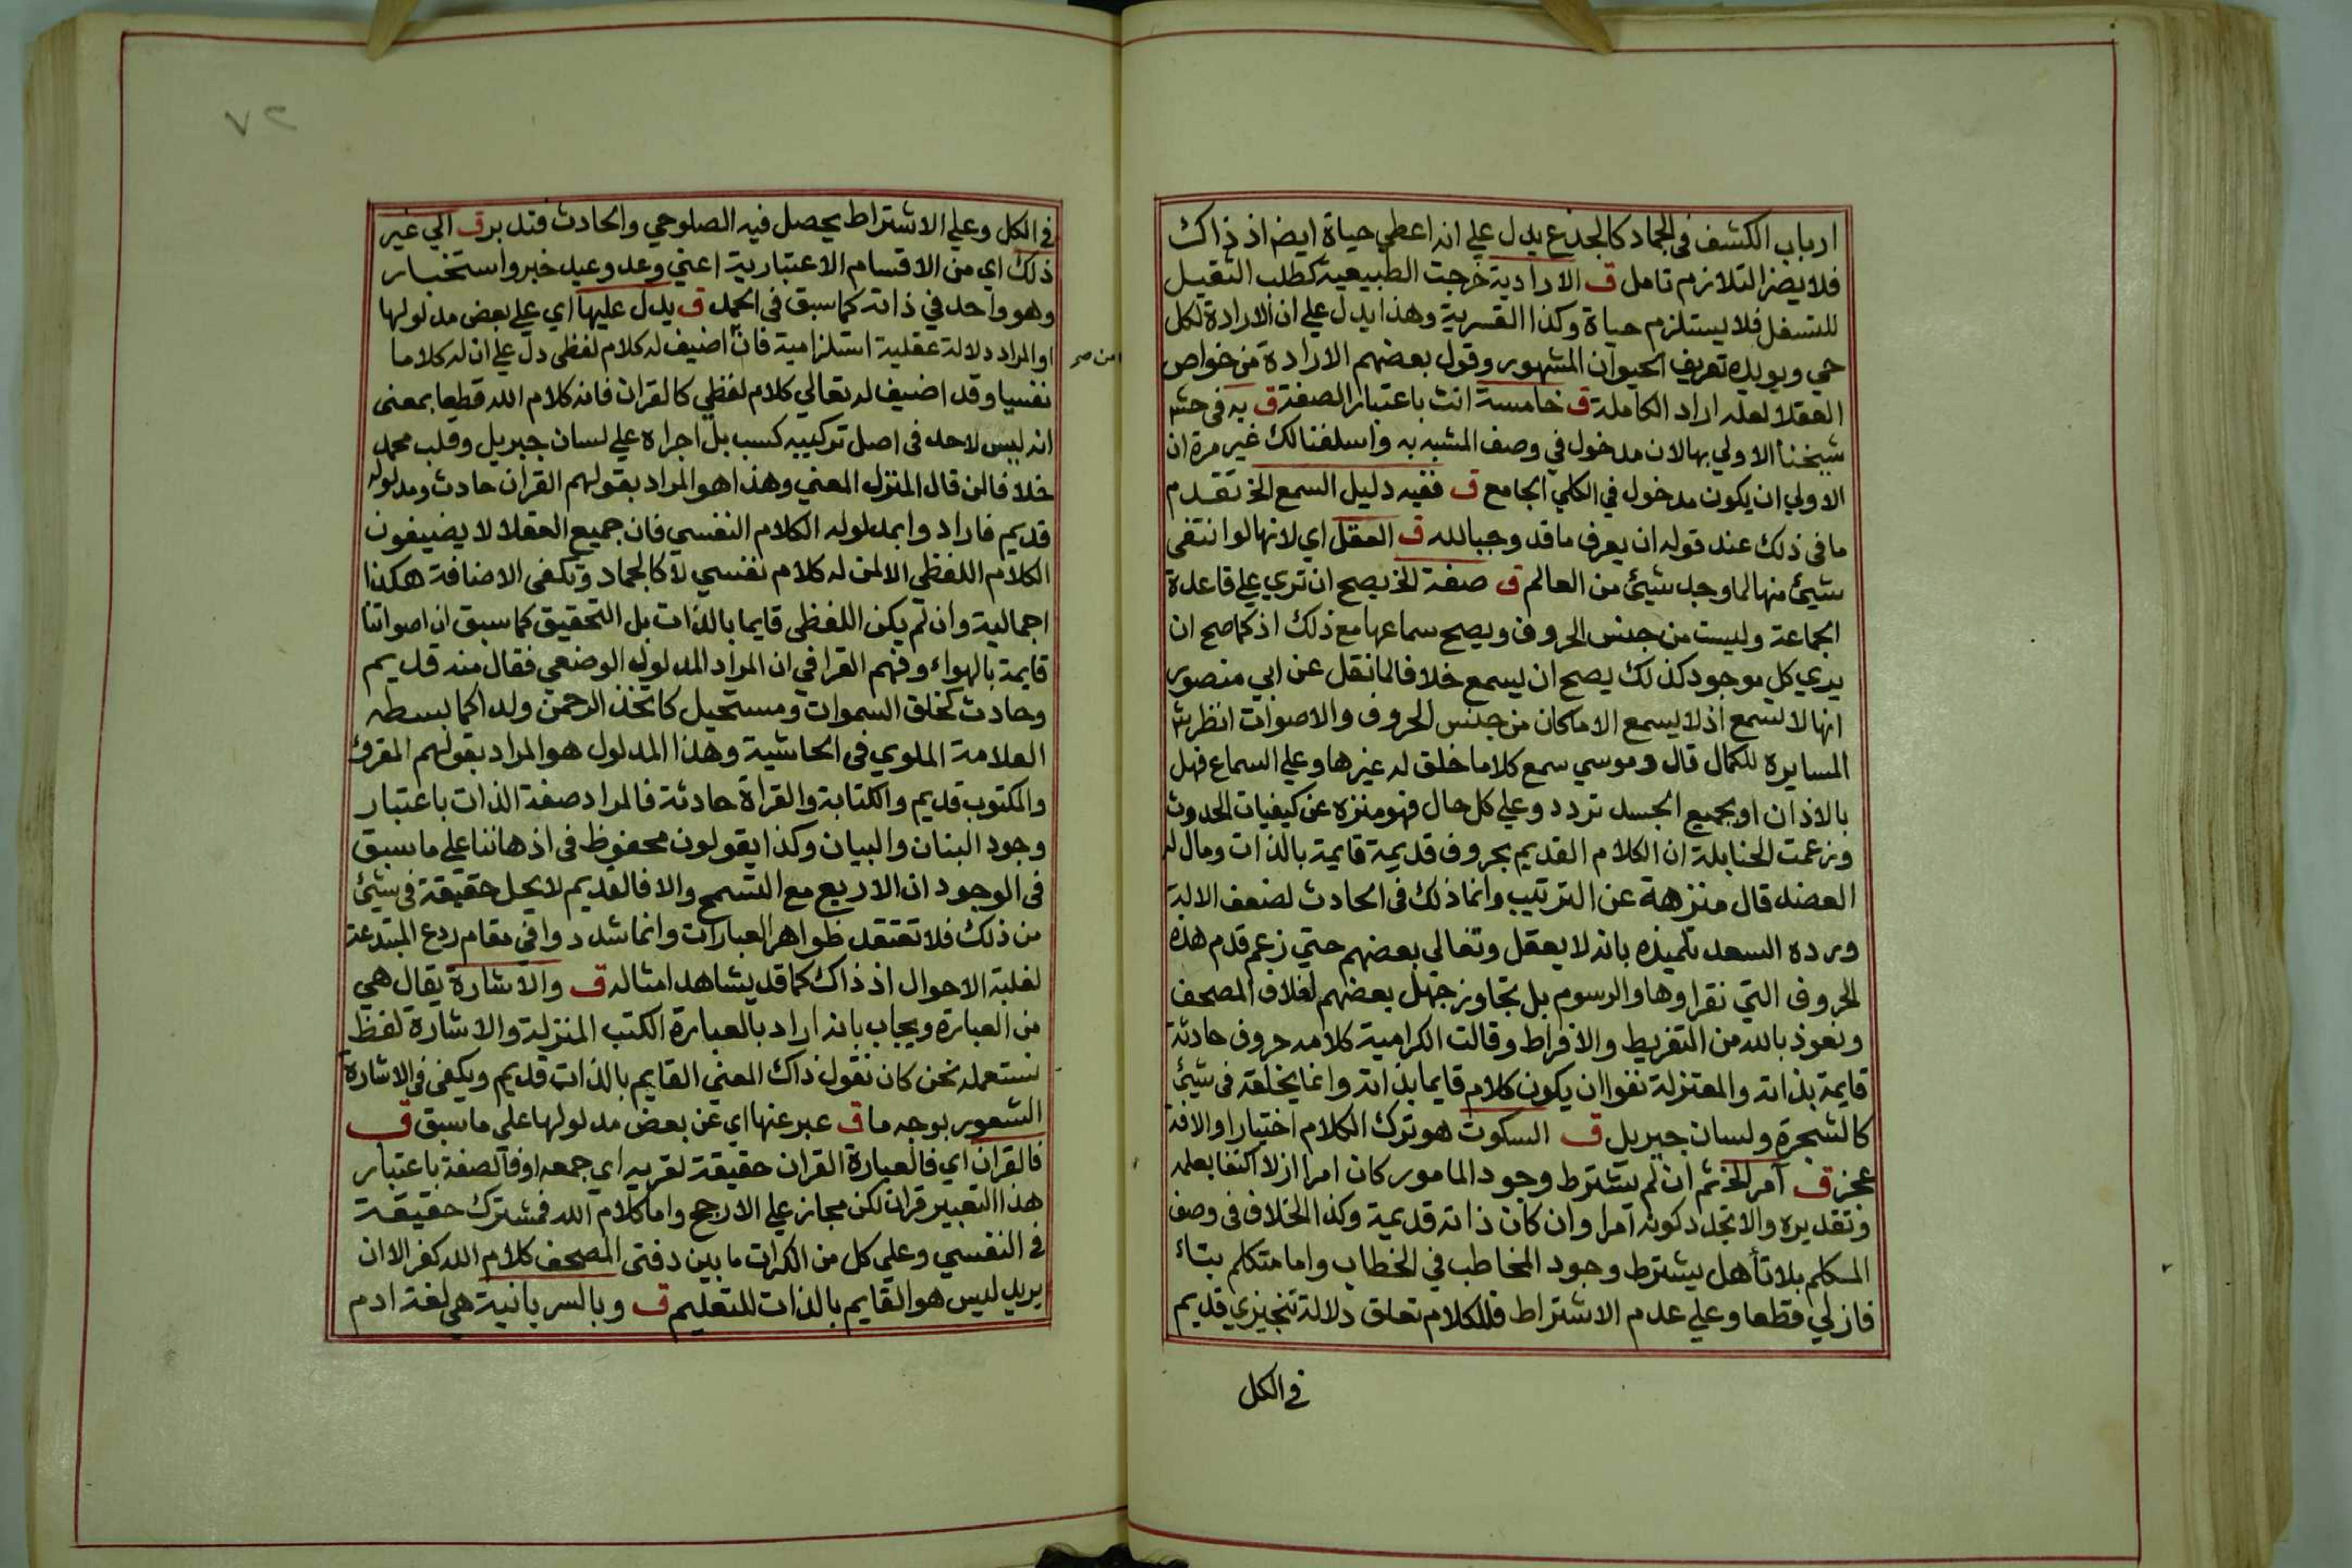 ارباب الكشف في الجماد كالجذع يدل علي انه اعطي حياة ايضا اذ ذاك
فلا يضر التلازم تامل ق الارادية خرجت الطبيعية كطلب الثقيل
للسفل فلا يستلزم حياة وكذا القسرية وهذا يدل علي ان الارادة لكل
حي ويويده تعريف الحيوان المشهور وقول بعضهم الارادة من خواص
العقلا لعله اراد الكاملة ق خامسة انث باعتبار الصفة ق به في حش
شيخنا الاولي بها لان مدخول في وصف المشبه به واسلفنا لك غير مرة ان
الاولي ان يكون مدخول في الكلي الجامع ق ففيه دليل السمع الخ تقدم
ما في ذلك عند قوله ان يعرف ما قد وجبا لله ق العقل اي لانها لو انتفي
شيئ منها لما وجد شيئ من العالم ق صفة الخ يصح ان تري علي قاعدة
الجماعة وليست من جنس الحروف ويصح سماعها مع ذلك اذ كما صح ان
يري كل موجود كذلك يصح ان يسمع خلافا لما نقل عن ابي منصور
انها لا تسمع اذ لا يسمع الا ما كان من جنس الحروف والاصوات انظر ش
المسايرة للكمال قال وموسي سمع كلاما خلق له غيرها وعلي السماع فهل
بالاذان او بجميع الجسد تردد وعلي كل حال فهو منزه عن كيفيات الحدوث
وزعمت الحنابلة ان الكلام القديم بحروف قديمة قايمة بالذات ومال له
العضد قال منزهة عن الترتيب وانما ذلك في الحادث لضعف الالة
ورده السعد تلميذه بانه لا يعقل وتغالي بعضهم حتي زعم قدم هذه
الحروف التي نقراوها والرسوم بل تجاوز جهل بعضهم لغلاف المصحف
ونعوذ بالله من التفريط والافراط وقالت الكرامية كلامه حروف حادثة
قايمة بذاته والمعتزلة نفوا ان يكون كلام قايما بذاته وانما يخلقه في شيئ
كالشجرة ولسان جبريل ق السكوت هو ترك الكلام اختيارا والافة
عجز ق آمر الخ ثم ان لم يشترط وجود المامور كان امرا ازلا اكتفا بعلمه
وتقديره والا تجدد كونه آمرا وان كان ذاته قديمة وكذا الخلاف في وصف
المكلم بلا تأهل يشترط وجود المخاطب في الخطاب واما متكلم بتاء
فازلي قطعا وعلي عدم الاشتراط فللكلام تعلق دلالة تنجيزي قديم
في الكل
٧٢
في الكل وعلي الاشتراط يحصل فيه الصلوحي والحادث فتدبر ق الي غير
ذلك اي من الاقسام الاعتبارية اعني وعد وعيد خبر واستخبار
وهو واحد في ذاته كما سبق في الحمد ق يدل عليها اي علي بعض مدلولها
او المراد دلالة عقلية استلزامية فان اضيف له كلام لفظي دل علي ان له كلاما
من صح
نفسيا وقد اضيف له تعالي كلام لفظي كالقران فانه كلام الله قطعا بمعني
انه ليس لاحد في اصل تركيبه كسب بل اجراه علي لسان جبريل وقلب محمد
خلافا لمن قال المنزل المعني وهذا هو المراد بقولهم القران حادث ومدلوله
قديم فارادوا بمدلوله الكلام النفسي فان جميع العقلا لا يضيفون
الكلام اللفظي الا لمن له كلام نفسي لا كالجماد وتكفي الاضافة هكذا
اجمالية وان لم يكن اللفظي قايما بالذات بل التحقيق كما سبق ان اصواتنا
قايمة بالهواء وفهم القرافي ان المراد المدلول الوضعي فقال منه قديم
وحادث كخلق السموات ومستحيل كاتخذ الرحمن ولدا كما بسطه
العلامة الملوي في الحاشية وهذا المدلول هو المراد بقولهم المقروء
والمكتوب قديم والكتابة والقراة حادثة فالمراد صفة الذات باعتبار
وجود البنان والبيان وكذا يقولون محفوظ في اذهاننا علي ما سبق
في الوجودات الاربع مع التسمح والا فالقديم لا يحل حقيقة في شيئ
من ذلك فلا تعتقد ظواهر العبارات وانما شددوا في مقام ردع المبتدعة
لغلبة الاحوال اذ ذاك كما قد يشاهد امثاله ق والاشارة يقال هي
من العبارة ويجاب بانه اراد بالعبارة الكتب المنزلة والاشارة لفظ
نستعمله نحن كان نقول ذاك المعني القايم بالذات قديم ويكفي في الاشارة
الشعور بوجه ما ق عبر عنها اي عن بعض مدلولها علي ما سبق ق
فالقران اي فالعبارة القران حقيقة لقريه اي جمعه او فالصفة باعتبار
هذا التعبير قران لكن مجاز علي الارجح واما كلام الله فمشترك حقيقة
في النفسي وعلي كل من انكر ان ما بين دفتي المصحف كلام الله كفر الا ان
يريد ليس هو القايم بالذات للتعليم ق وبالسريانية هي لغة ادم